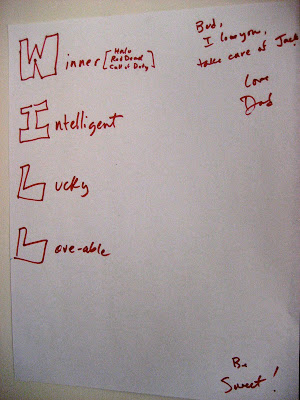 Winner [Halo
Red Dead
Call of Duty]
Intelligent
Lucky
Love-able
Bud,
I love you,
take care of Jack
Love
Dad
Be
Sweet!